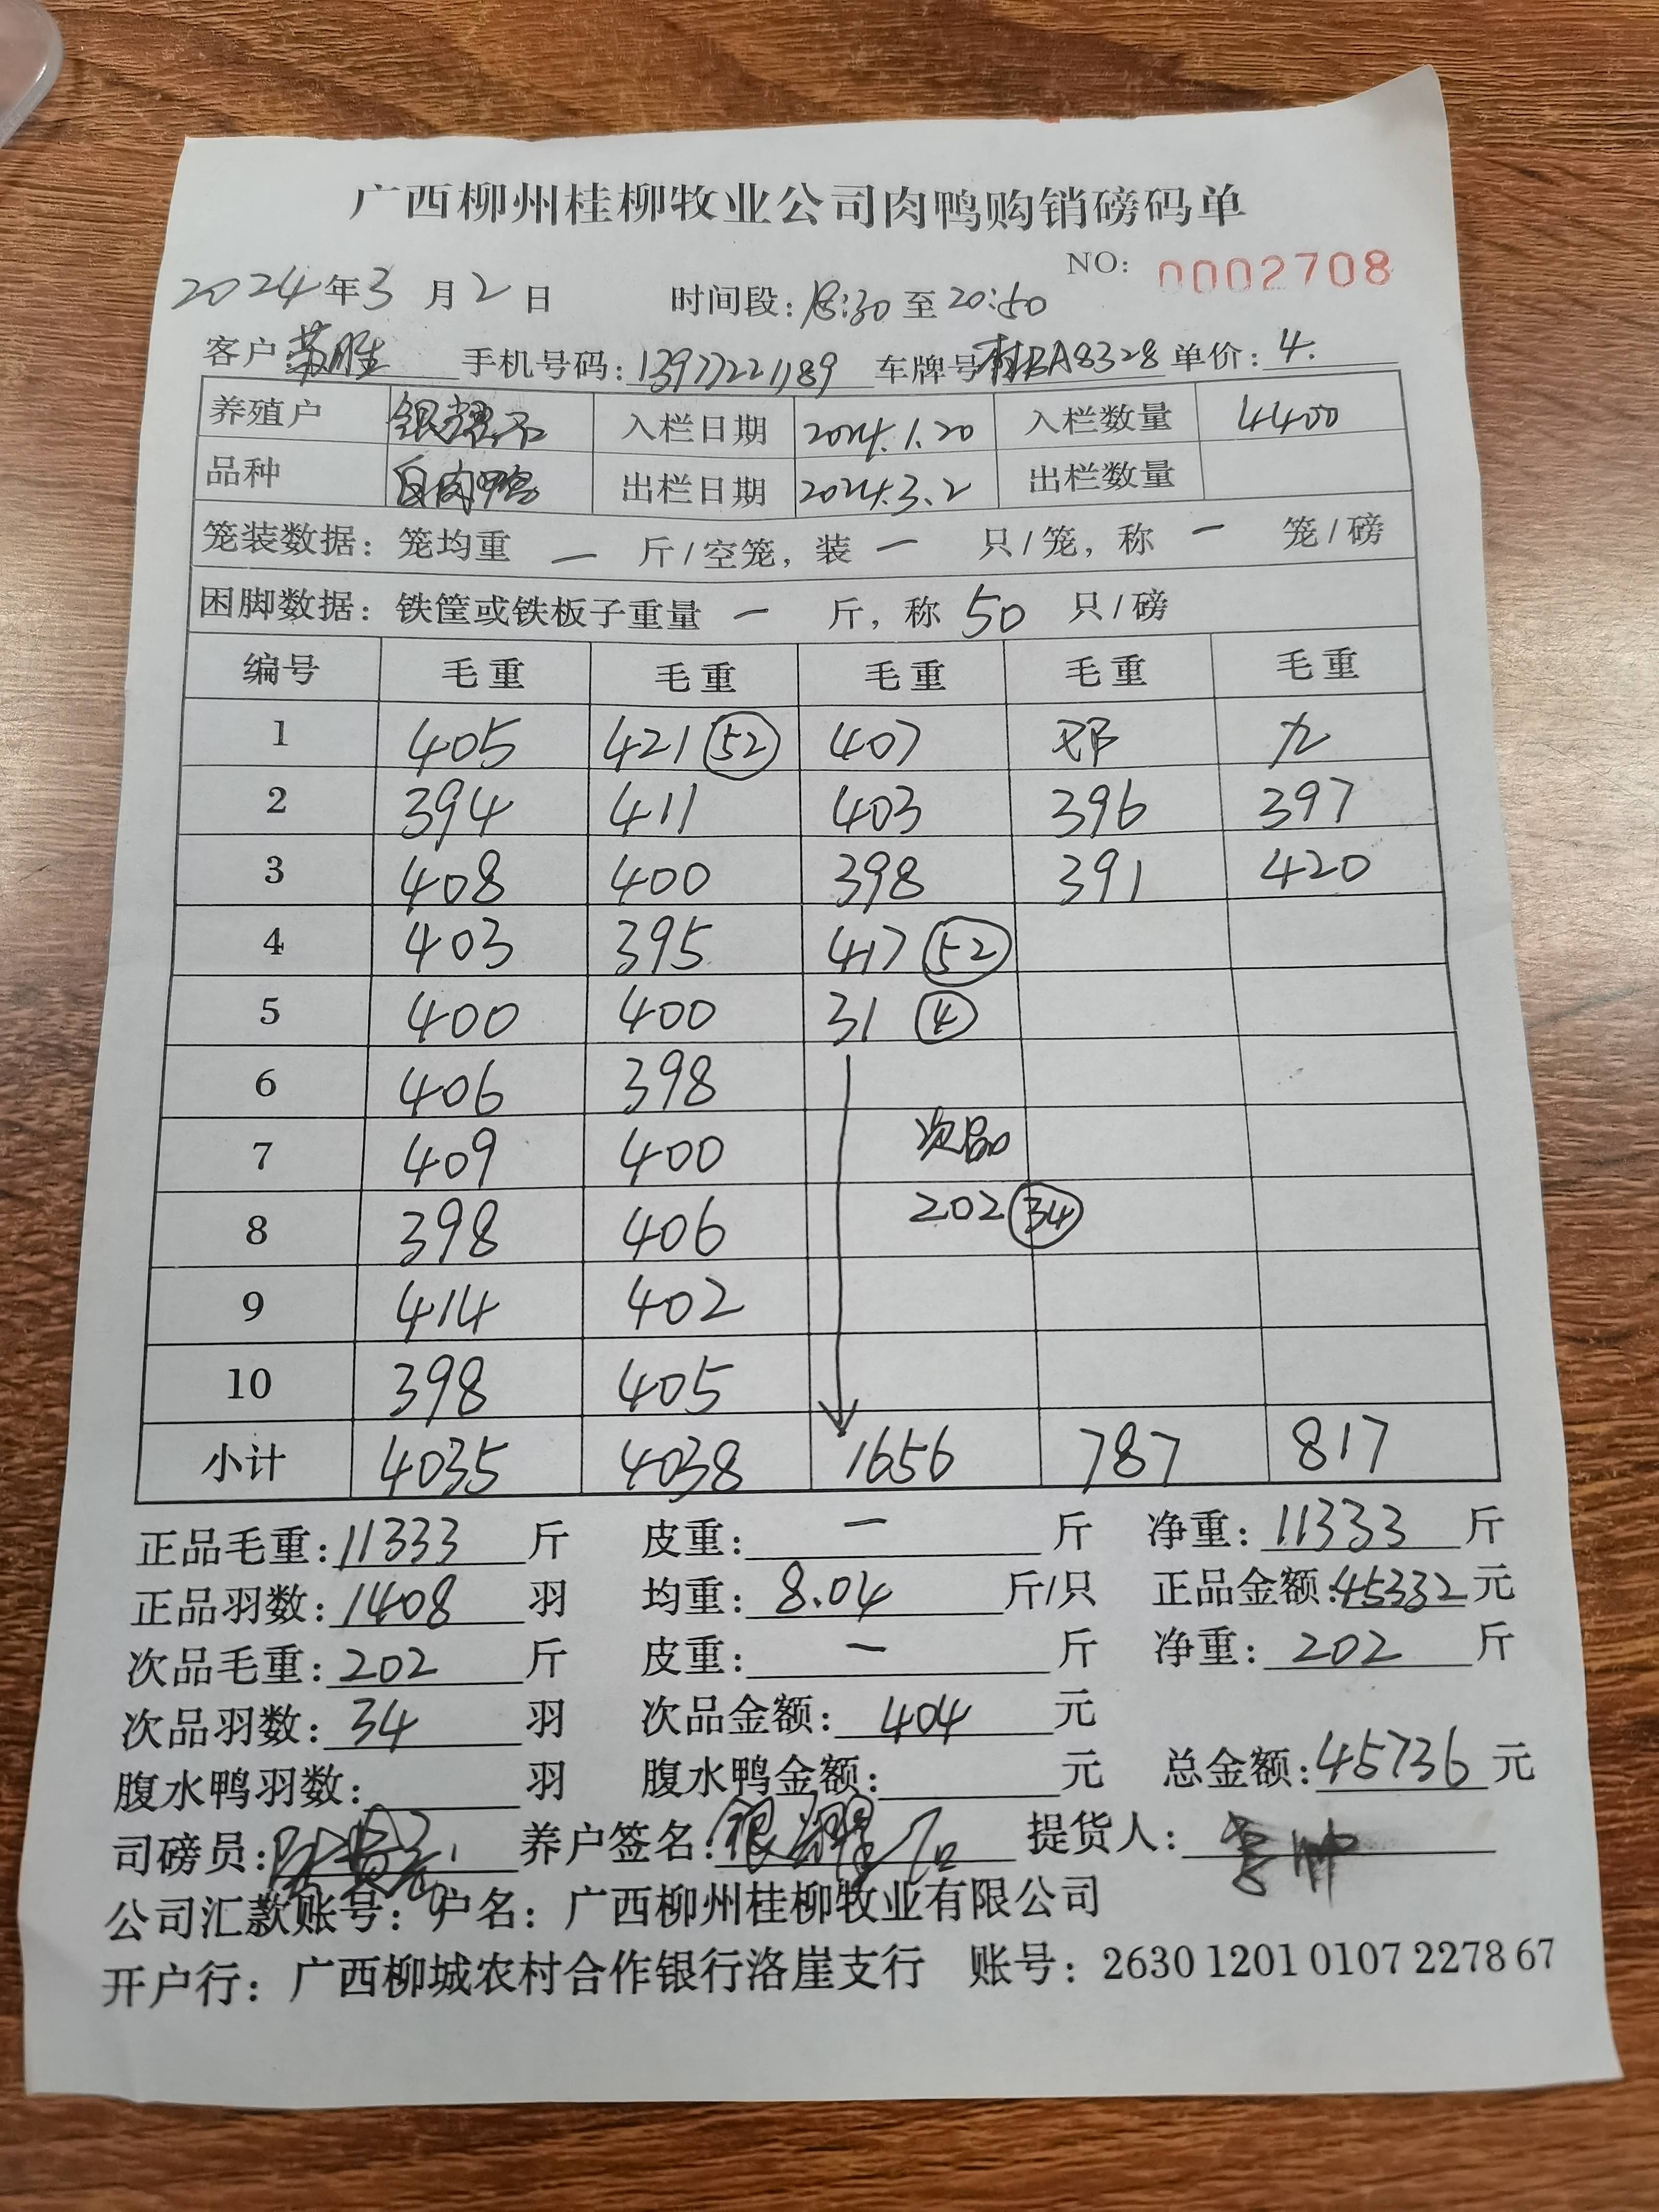 广西柳州桂柳牧业公司肉鸭购销磅码单
NO: 0002708
2024年3月2日 时间段:18:30至20:50
客户 苏胜 手机号码:13977221189 车牌号桂BA8328 单价:4.
养殖户 银 入栏日期 2024.1.20 入栏数量 4400
品种 白肉鸭 出栏日期 2024.3.2 出栏数量
笼装数据:笼均重 一 斤/空笼,装 一 只/笼,称 一 笼/磅
困脚数据:铁筐或铁板子重量 一 斤,称 50 只/磅
编号 毛重 毛重 毛重 毛重 毛重
1 405 421 52 407 邓 九
2 394 411 403 396 397
3 408 400 398 391 420
4 403 395 417 52
5 400 400 31 4
6 406 398
7 409 400 次品
8 398 406 202 34
9 414 402
10 398 405
小计 4035 4038 1656 787 817
正品毛重:11333 斤 皮重:一 斤 净重:11333 斤
正品羽数:1408 羽 均重:8.04 斤/只 正品金额:45332元
次品毛重:202 斤 皮重:一 斤 净重:202 斤
次品羽数:34 羽 次品金额:404 元
腹水鸭羽数: 羽 腹水鸭金额: 元 总金额:45736元
司磅员: 养户签名:银 提货人:李帅
公司汇款账号:户名:广西柳州桂柳牧业有限公司
开户行:广西柳城农村合作银行洛崖支行 账号:2630 1201 0107 2278 67